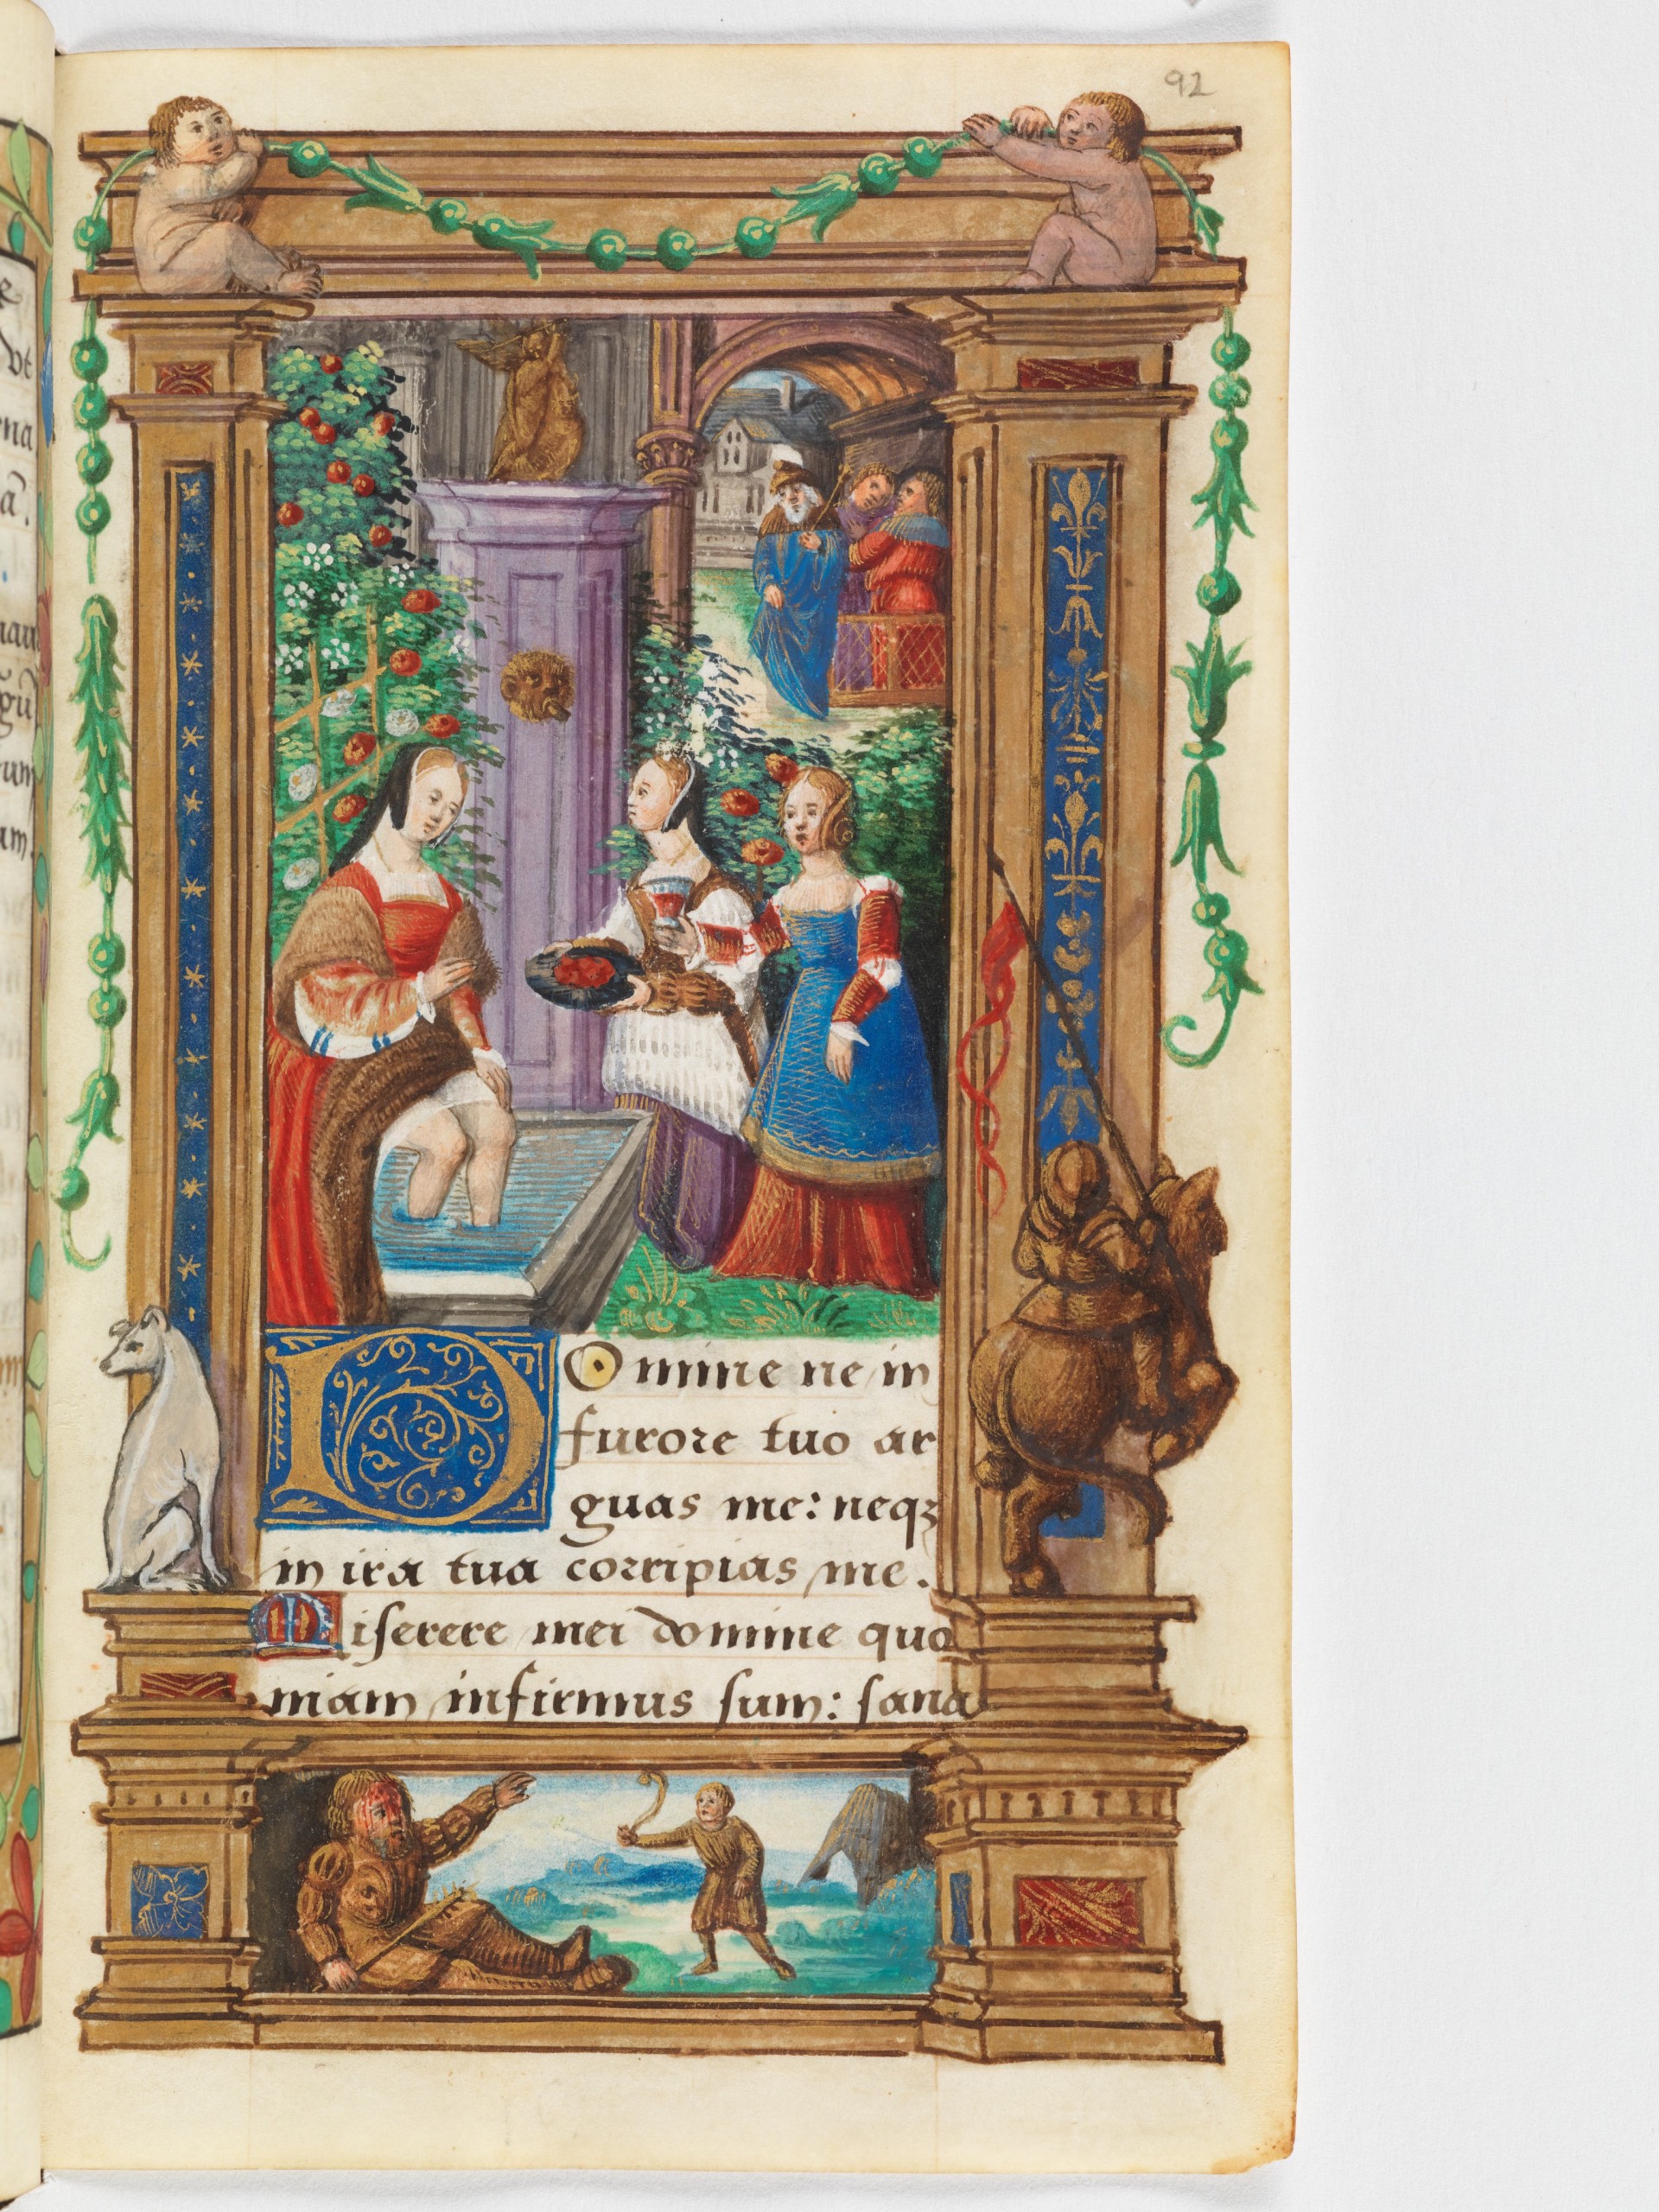 92
Domine ne in
furore tuo ar
guas me: neqꝫ
in ira tua corripias me.
Miserere mei domine quo
niam infirmus sum: sana